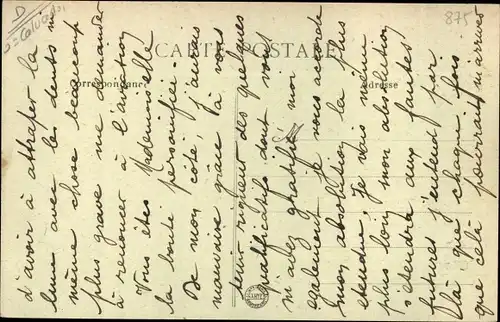 D
= Calvados
875
CARTE POSTALE
Correspondance
Adresse
d'avoir à attraper la
lune avec les dents ni
même chose beaucoup
plus grave me demander
à renoncer à l'aviation
Vous êtes Mademoiselle
la bonté personnifiée.
De mon côté, j'aurais
mauvaise grâce à vous
tenir rigueur des quelques
qualificatifs dont vous
m'avez gratifié moi
également je vous accorde
mon absolution la plus
étendue. Je vous même
plus loin, mon absolution
s'étendra aux fautes
futures, j'entend par
là que chaque fois
que celà pourrait m'arriver